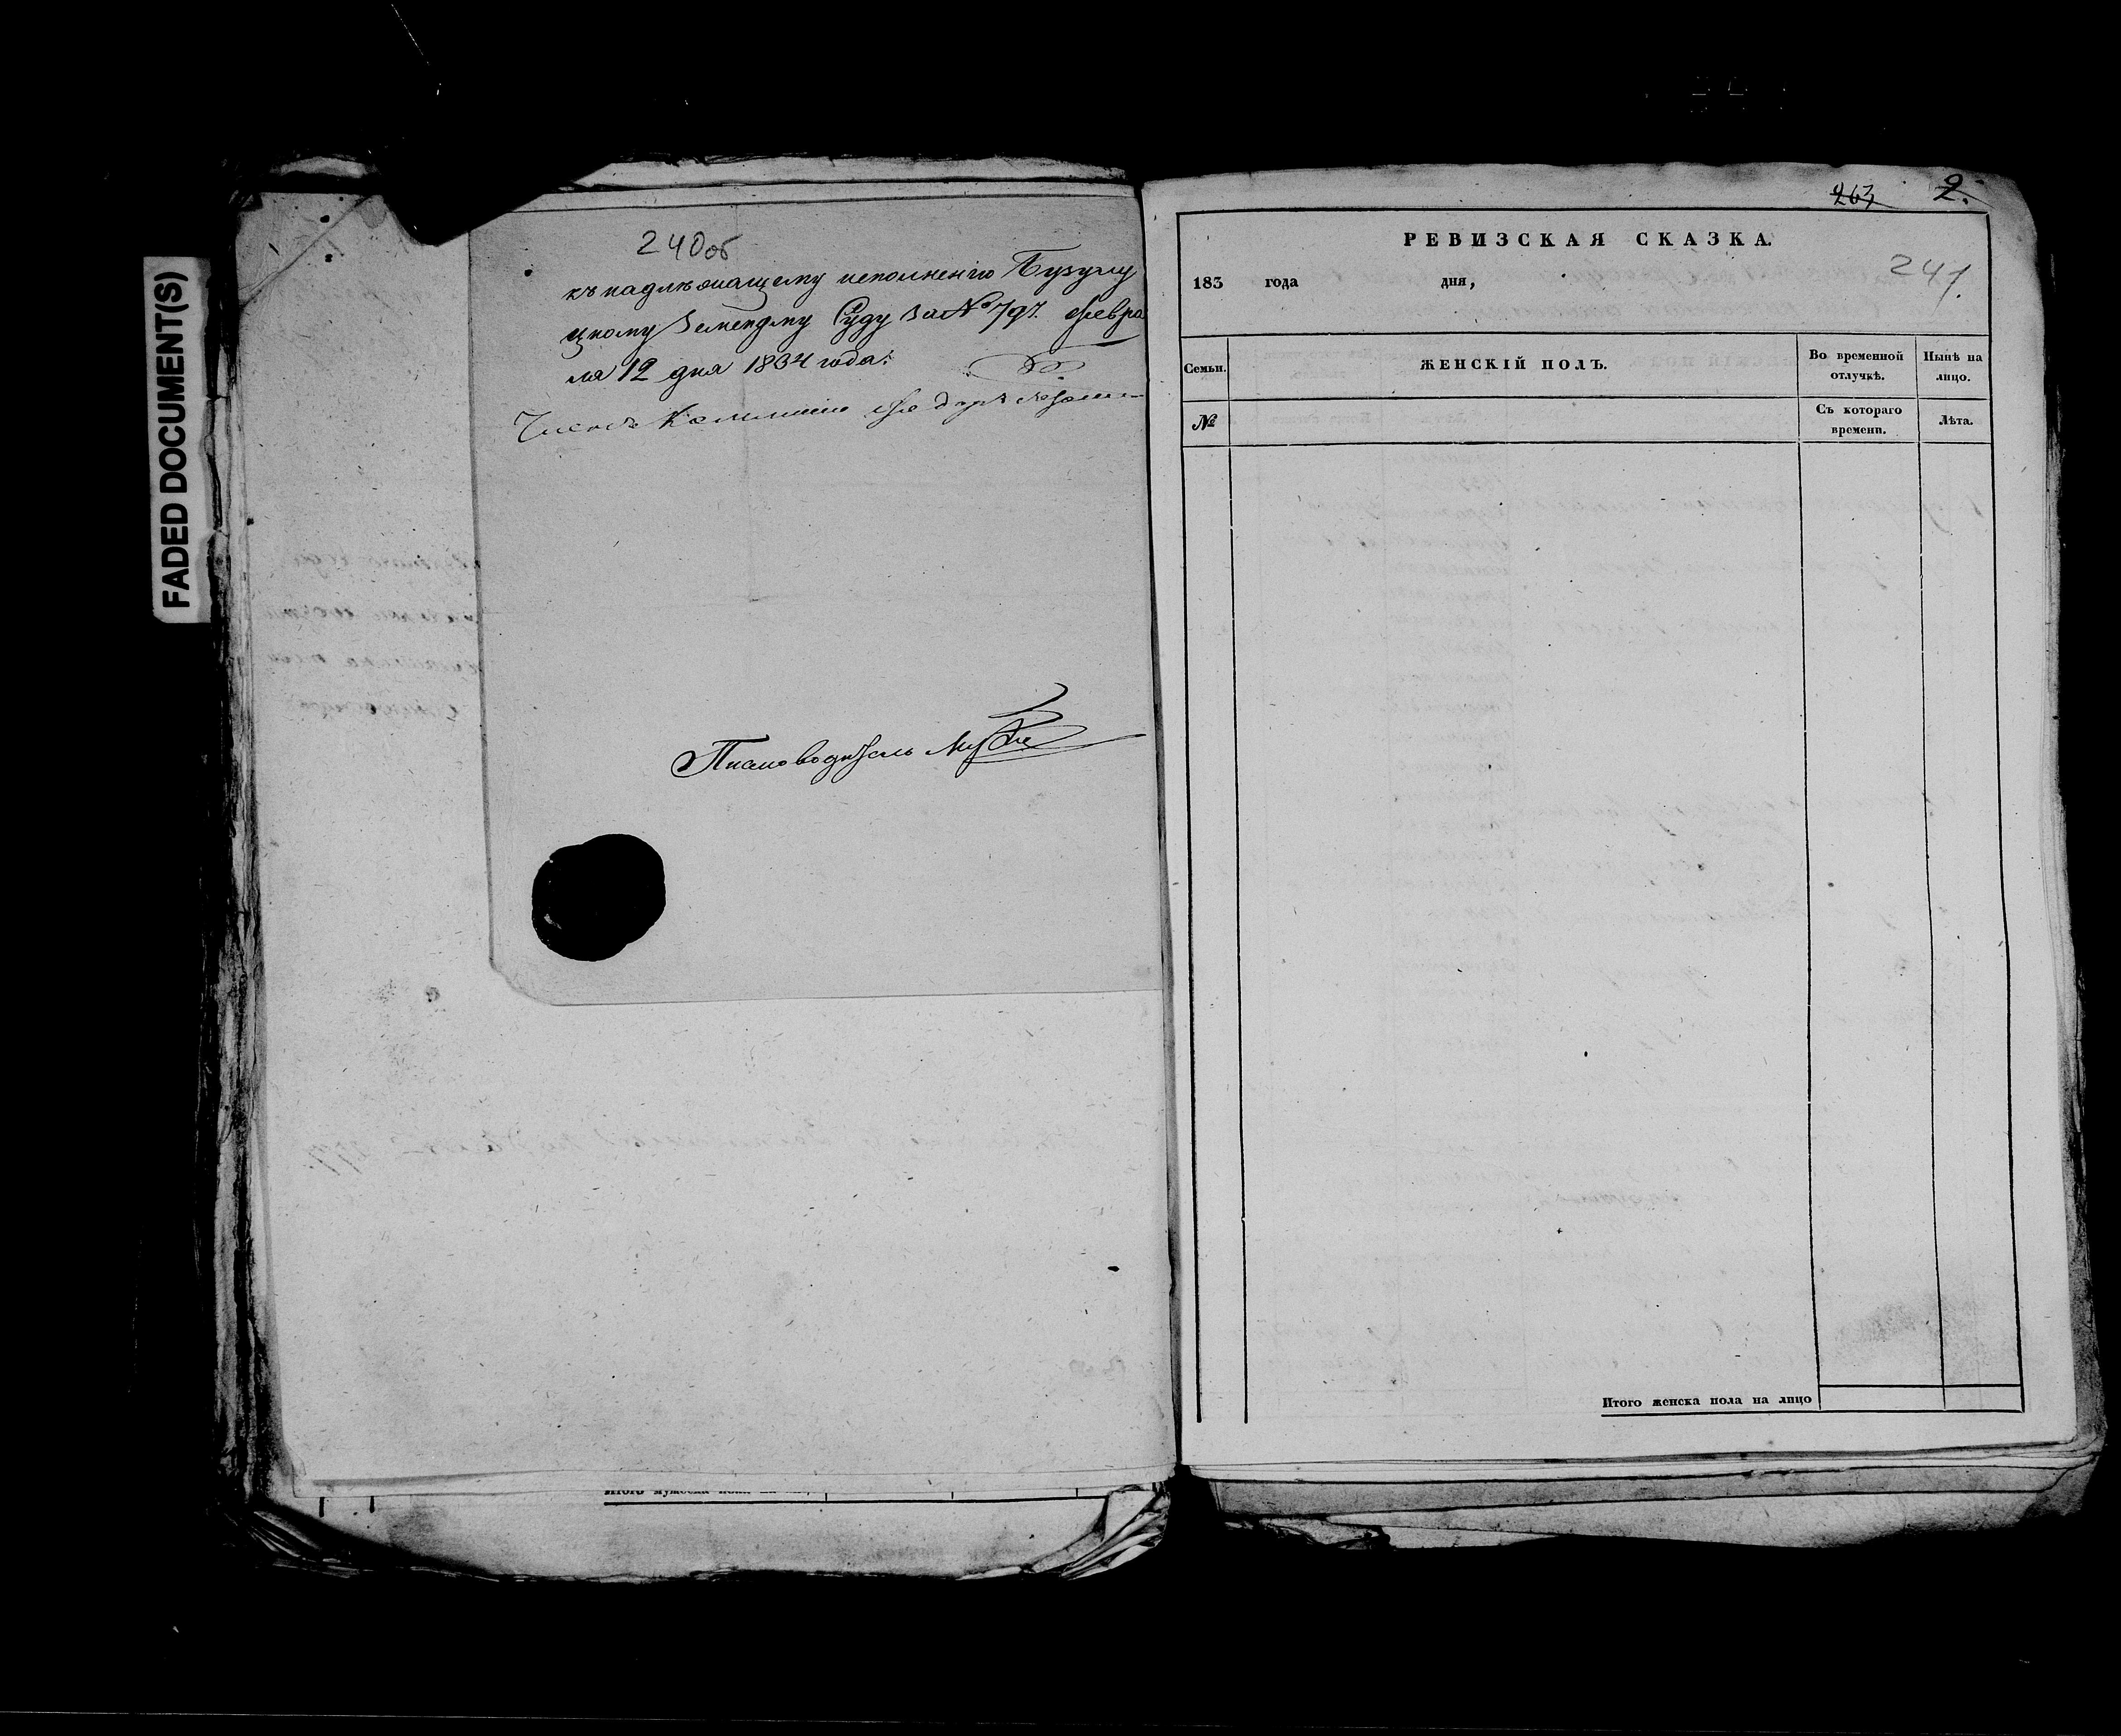 FADED DOCUMENT(S)
240об
къ надлѣжащему исполненію Бузулу
цкому Земскому Суду за № 797. февра
ля 12 дня 1834 года.
Членъ Коммисіи
Писмоводитель
263 2.
РЕВИЗСКАЯ СКАЗКА.
241.
183 года дня,
Семьи. ЖЕНСКІЙ ПОЛЪ. Во временной отлучкѣ. Нынѣ на лицо.
№ Съ котораго времени. Лѣта.
Итого женска пола на лицо
Итого мужеска пола